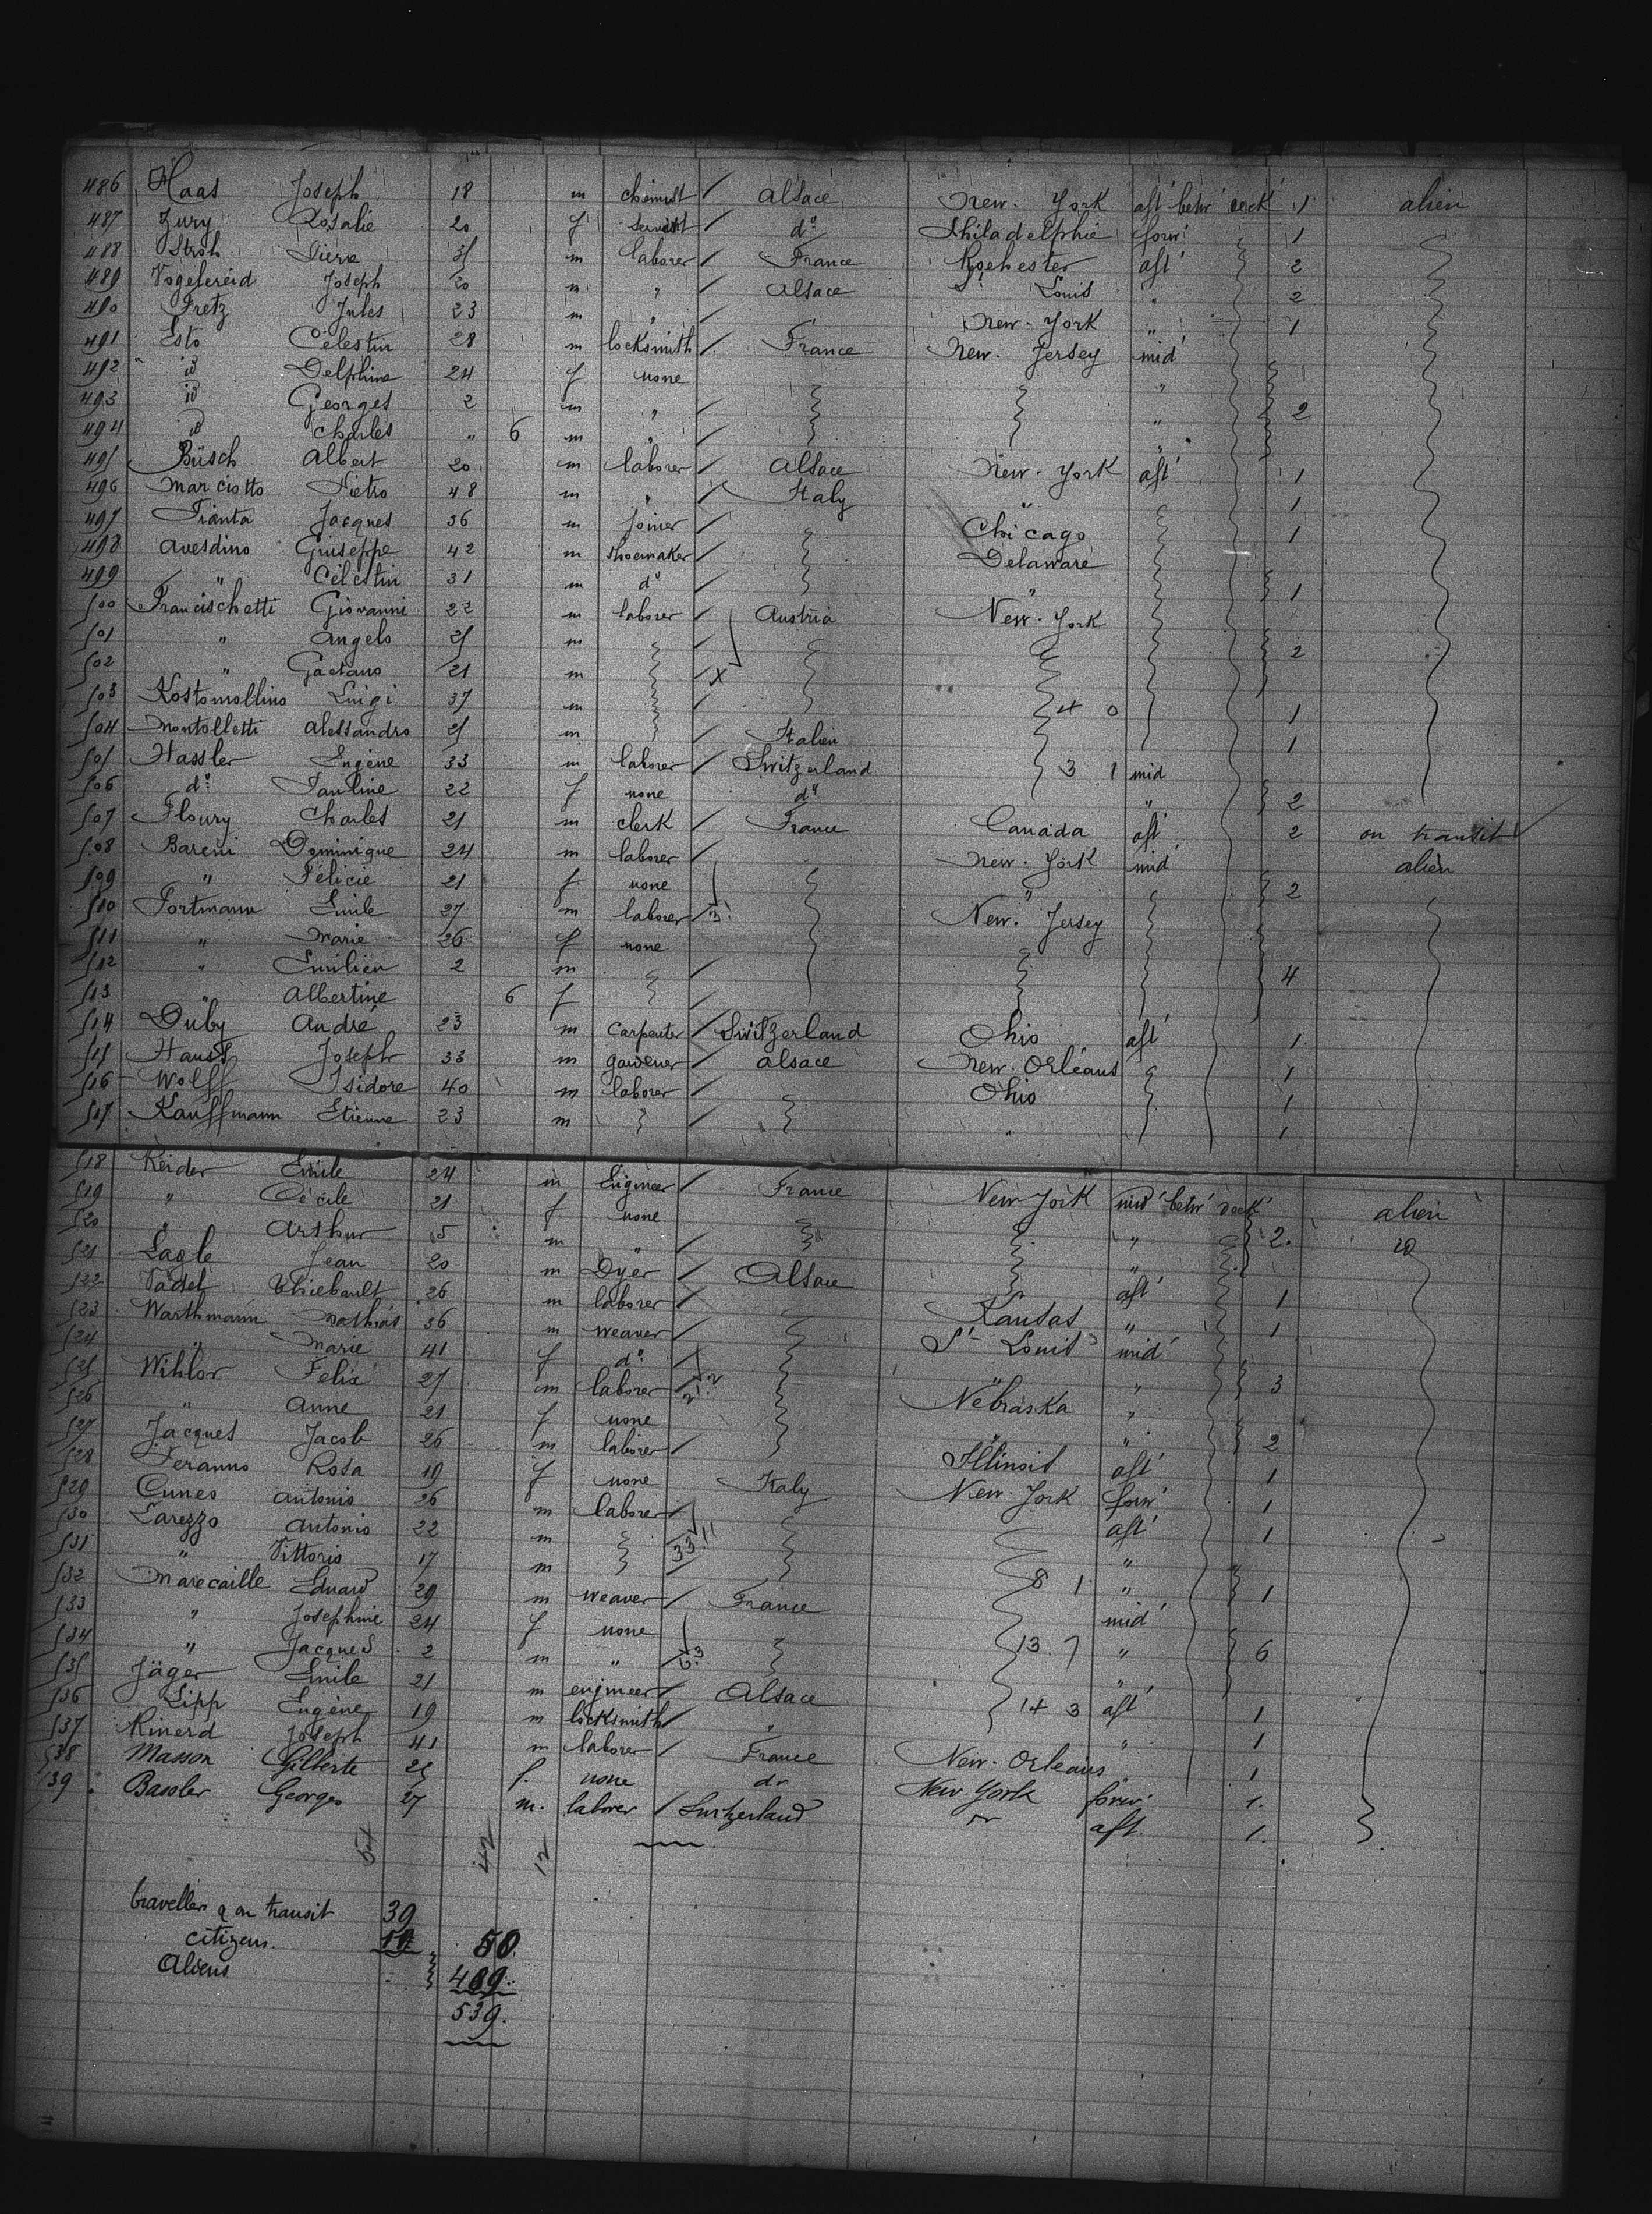 486 Haas Joseph 18 m chemist / Alsace New. York aft betw deck 1 alien
487 Zury Rosalie 20 f servant / d° Philadelphie forw 1
488 Stroh Pierre m laborer / France Rochester aft 2
489 Joseph 20 m " / Alsace St Louis " 2
490 Fretz Jules 23 m " / New. York " 1
491 Esto Célestin 28 m locksmith / France New. Jersey mid
492 " id Delphine 24 f none "
493 id Georges 2 m " / " 2
494 id Charles " 6 m " / "
495 Büsch Albert 20 m laborer / Alsace New. York aft 1
496 Marciotto Pietro 48 m " / Italy " 1
497 Pianta Jacques 36 m joiner / Chicago 1
498 Avesdino Giuseppe 42 m shoemaker / Delaware
499 " Célestin 31 m d° / " 1
500 Francischetti Giovanni 22 m laborer / Austria New. York
501 " Angelo 25 m / 2
502 " Gaetano 21 m / X
503 Kostomollino Luigi 37 m / 4 0 1
504 Montolletti Alessandro 25 m / Italien 1
505 Hassler Eugène 33 m laborer / Switzerland 3 1 mid
506 d° Pauline 22 f none d° " 2
507 Floury Charles 21 m clerk / France Canada aft 2 on transit
508 Bareni Dominique 24 m laborer / New. York mid alien
509 " Félicie 21 f none " 2
510 Portmann Emile 27 m laborer / New. Jersey
511 " Marie 26 f none
512 " Emilien 2 m / 4
513 " Albertine 6 f /
514 Duby André 23 m carpenter / Switzerland Ohio aft 1
515 Hauss Joseph 33 m gardener / Alsace New. Orléans 1
516 Wolff Isidore 40 m laborer / Ohio 1
517 Kauffmann Etienne 23 m / " 1
518 Reider Emile 24 m Engineer / France New York mid betw deck alien
519 " Cécile 21 f none " 2. id
520 " Arthur 5 m " / "
521 Lagle Jean 20 m Dyer / Alsace aft 1
522 Vadel Thiebault 26 m laborer / Kansas " 1
523 Warthmann Mathias 36 m weaver / St Louis mid
524 " Marie 41 f d° " " 3
525 Felix 27 m laborer / Nebraska "
526 " Anne 21 f none " " 2
527 Jacques Jacob 26 m laborer / Illinois aft 1
528 Feranno Rosa 19 f none Italy New York forw 1
529 Cunes Antonio 26 m laborer / aft 1
530 Larezzo Antonio 22 m / "
531 " Vittorio 17 m / 8 1 " 1
532 Marecaille Eduard 29 m weaver / France mid
533 " Josephine 24 f none 13 7 " 6
534 " Jacques 2 m " / "
535 Jäger Emile 21 m engineer / Alsace 14 3 aft 1
536 Lipp Eugène 19 m locksmith / " " 1
537 Rinerd Joseph 41 m laborer / France New. Orleans " 1
538 Masson Gilberte 25 f. none do New York forw. 1.
539 Bassler Georges 27 m. laborer / Switzerland do aft. 1.
54 42 12
travellers on transit 39
citizens. 50.
Aliens 489.
539.